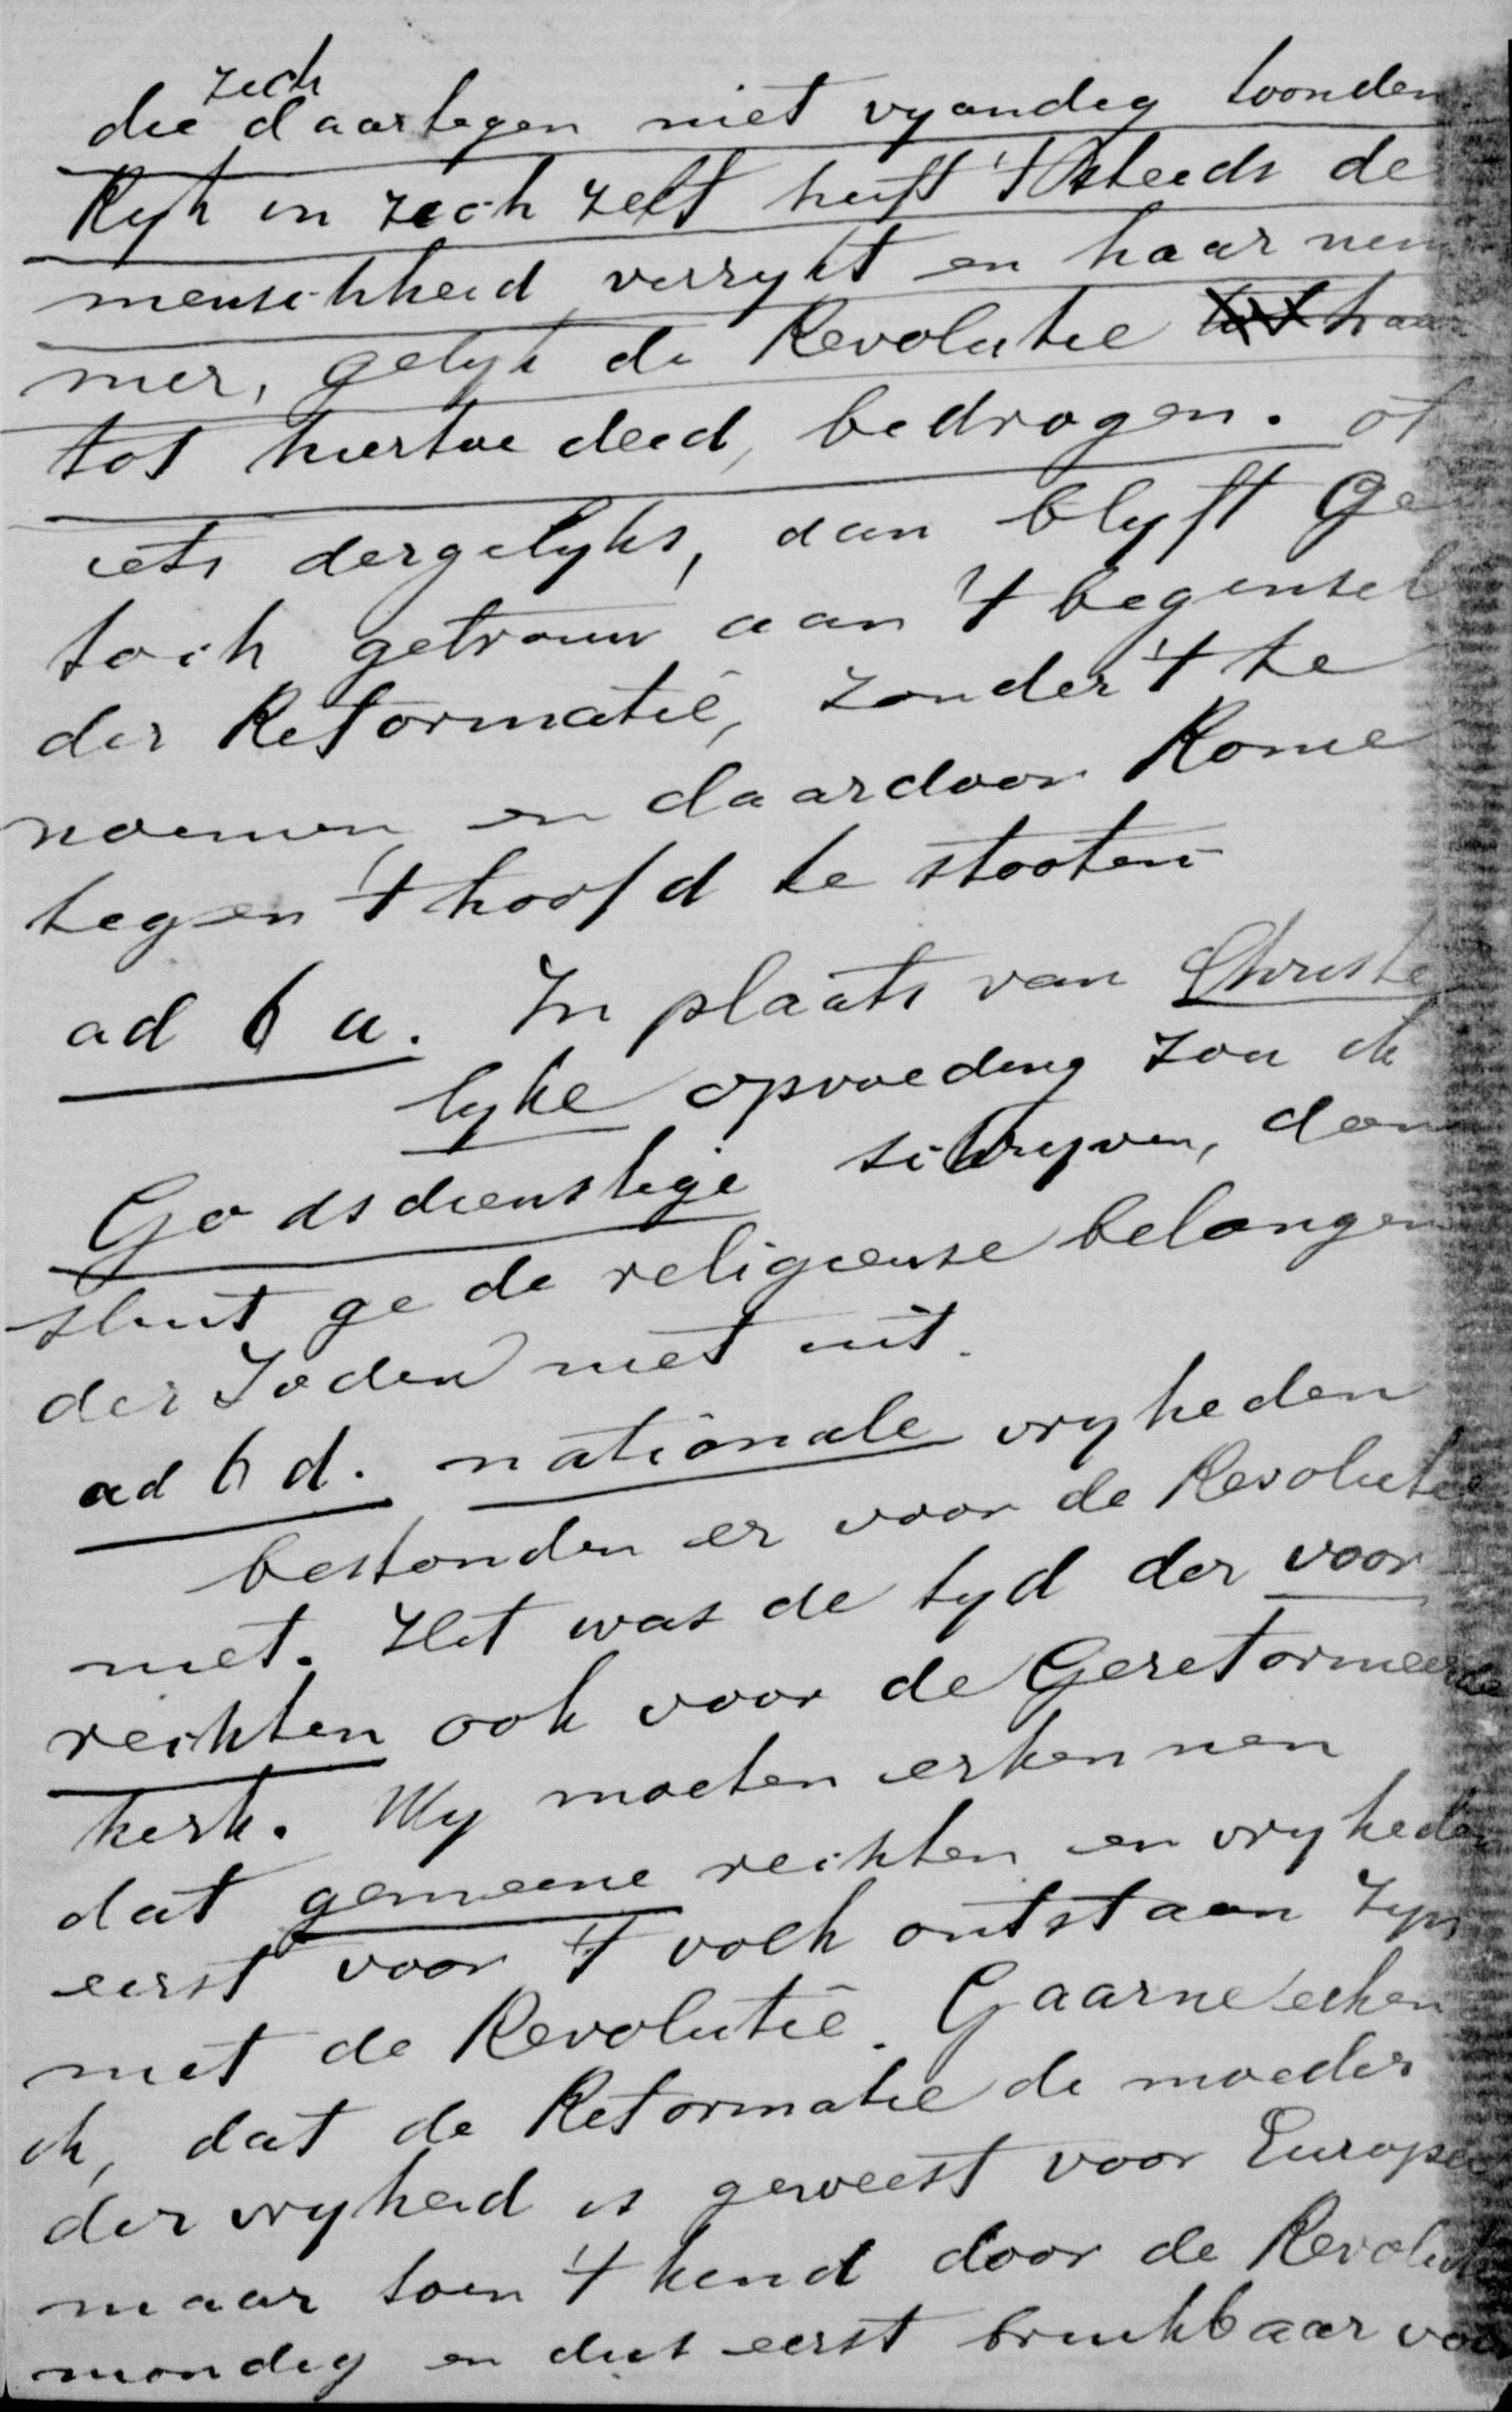 zich
die daartegen niet vyandig toonden.
Ryk in zich zelf heeft 't steeds de
menschheid verrykt en haar nim
mer, gelyk de Revolutie tot haar
tot hiertoe deed, bedrogen. of
iets dergelyks, dan blyft Ge
toch getrouw aan 't beginsel
der Reformatie, zonder 't te
noemen en daardoor Rome
tegen 't hoofd te stooten
ad 6 a. In plaats van Christe
lyke opvoeding zou ik
Godsdienstige schryven, dan
sluit ge de religieuse belangen
der Joden niet uit.
ad 6 d. nationale vryheden
bestonden er voor de Revolutie
niet. Het was de tyd der voor
rechten ook voor de Gereformeerde
kerk. Wy moeten erkennen
dat gemeene rechten en vryheden
eerst voor 't volk ontstaan zyn
met de Revolutie. Gaarne erken
ik, dat de Reformatie de moeder
der vryheid is geweest voor Europa
maar toen 't kind door de Revolutie
mondig en dus eerst bruikbaar voor